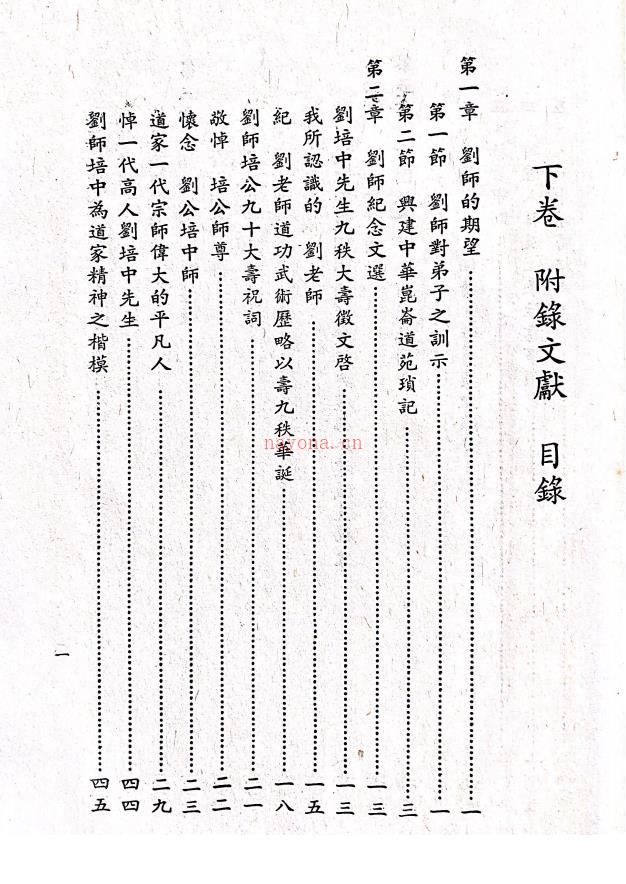 下卷　附錄文獻　目錄
第一章　劉師的期望……一
第一節　劉師對弟子之訓示……一
第二節　興建中華崑崙道苑瑣記……三
第二章　劉師紀念文選……一三
劉培中先生九秩大壽徵文啓……一三
我所認識的　劉老師……一五
紀　劉老師道功武術歷略以壽九秩華誕……一八
劉師培公九十大壽祝詞……二一
敬悼　培公師尊……二二
懷念　劉公培中師……二三
道家一代宗師偉大的平凡人……二九
悼一代高人劉培中先生……四四
劉師培中為道家精神之楷模……四五
一
nayona.cn